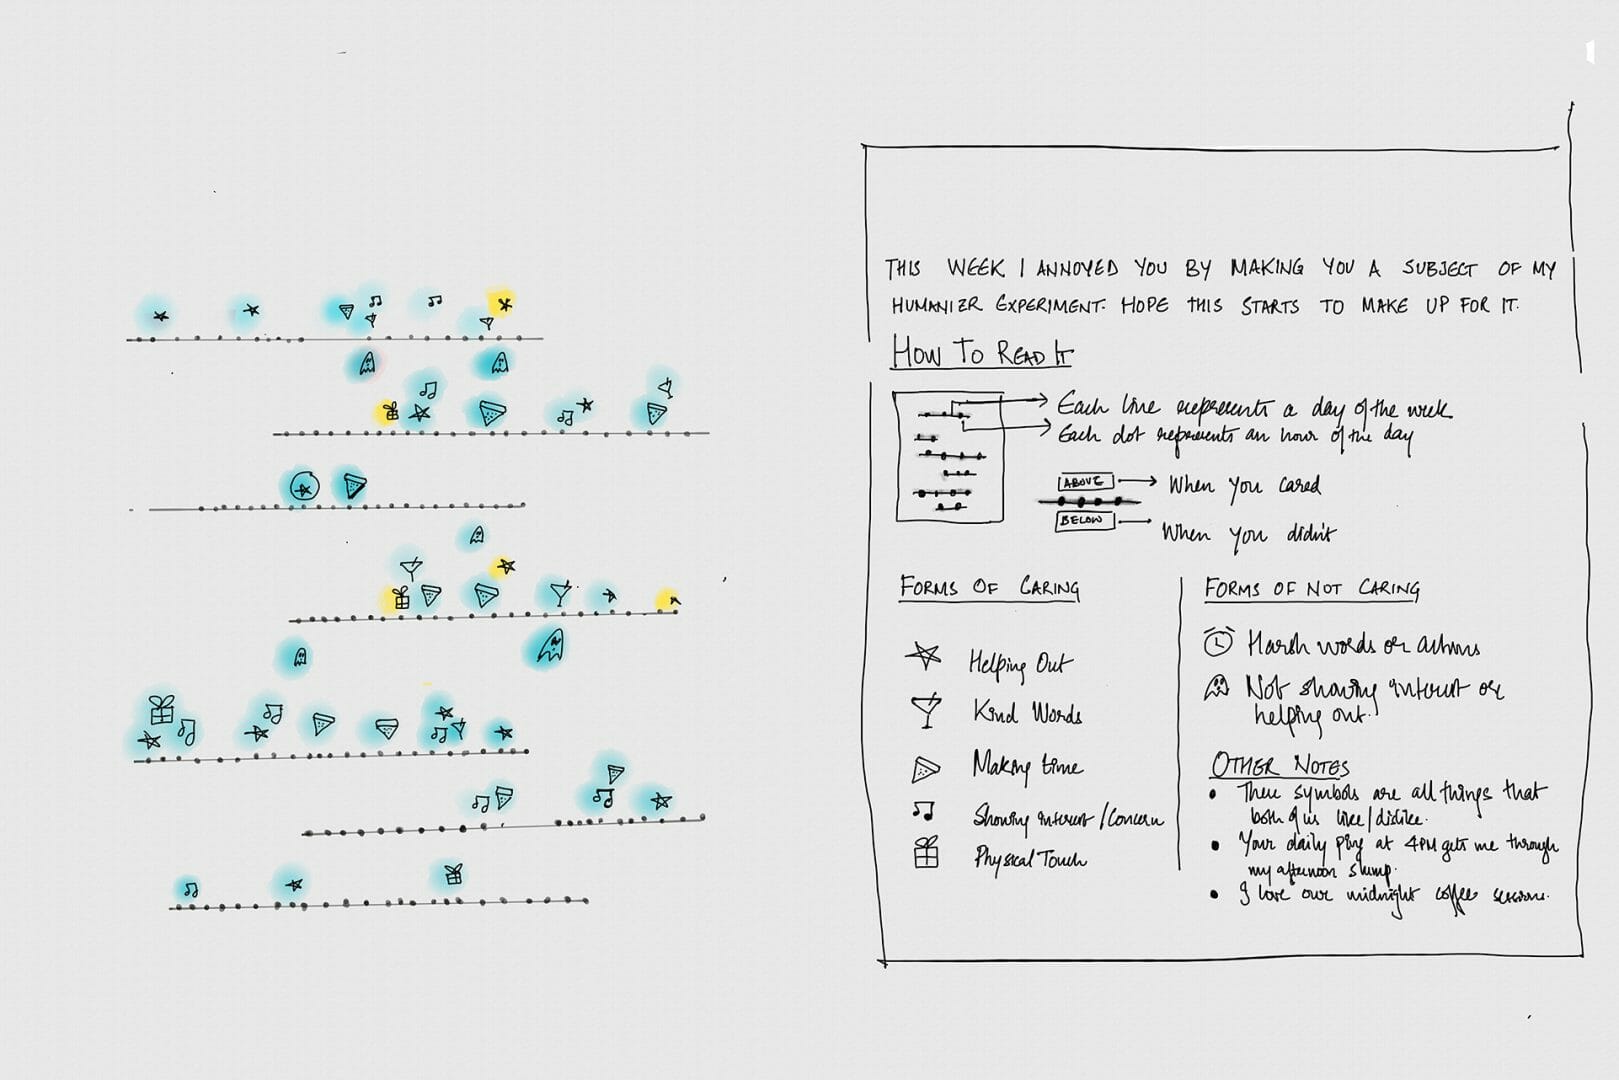 THIS WEEK I ANNOYED YOU BY MAKING YOU A SUBJECT OF MY
HUMANIZR EXPERIMENT. HOPE THIS STARTS TO MAKE UP FOR IT.
HOW TO READ IT
Each line represents a day of the week
Each dot represents an hour of the day
ABOVE
When you cared
BELOW
When you didn't
FORMS OF CARING
Helping Out
Kind Words
Making time
Showing interest/Concern
Physical Touch
FORMS OF NOT CARING
Harsh words or actions
Not showing interest or
helping out.
OTHER NOTES
• These symbols are all things that
both of us like/dislike.
• Your daily ping at 4PM gets me through
my afternoon slump.
• I love our midnight coffee sessions.